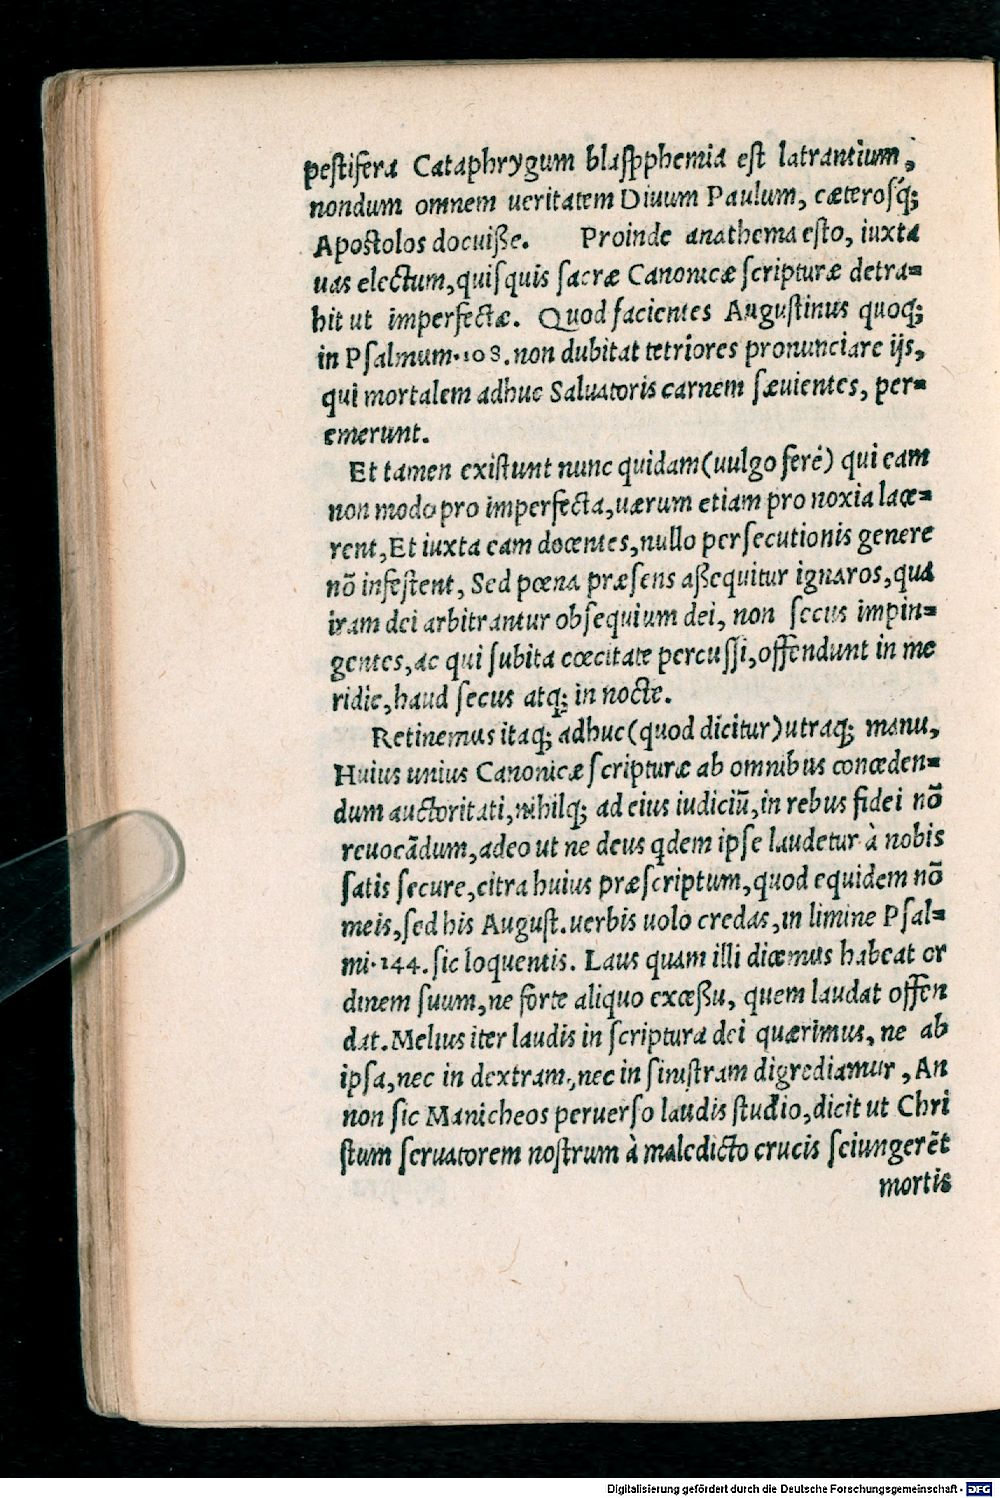 pestifera Cataphrygum blaspphemia est latrantium,
nondum omnem ueritatem Diuum Paulum, cæterosq́;
Apostolos docuiße. Proinde anathema esto, iuxta
uas electum, quisquis sacræ Canonicæ scripturæ detra=
hit ut imperfectæ. Quod facientes Augustinus quoq;
in Psalmum.108. non dubitat tetriores pronunciare ijs,
qui mortalem adhuc Saluatoris carnem sæuientes, per=
emerunt.
Et tamen existunt nunc quidam (uulgo ferè) qui eam
non modo pro imperfecta, uærum etiam pro noxia lace=
rent, Et iuxta eam docentes, nullo persecutionis genere
nõ infestent, Sed pœna præsens aßequitur ignaros, qua
iram dei arbitrantur obsequium dei, non secus impin=
gentes, ac qui subita cœcitate percussi, offendunt in me
ridie, haud secus atq; in nocte.
Retinemus itaq; adhuc (quod dicitur) utraq; manu,
Huius unius Canonicæ scripturæ ab omnibus conceden=
dum auctoritati, nihilq; ad eius iudiciũ, in rebus fidei nõ
reuocãdum, adeo ut ne deus qdem ipse laudetur à nobis
satis secure, citra huius præscriptum, quod equidem nõ
meis, sed his August. uerbis uolo credas, in limine Psal=
mi.144. sic loquentis. Laus quam illi dicemus habeat or
dinem suum, ne forte aliquo exceßu, quem laudat offen
dat. Melius iter laudis in scriptura dei quærimus, ne ab
ipsa, nec in dextram, nec in sinistram digrediamur, An
non sic Manicheos peruerso laudis studio, dicit ut Chri
stum seruatorem nostrum à maledicto crucis seiungerẽt
mortis
Digitalisierung gefördert durch die Deutsche Forschungsgemeinschaft - DFG